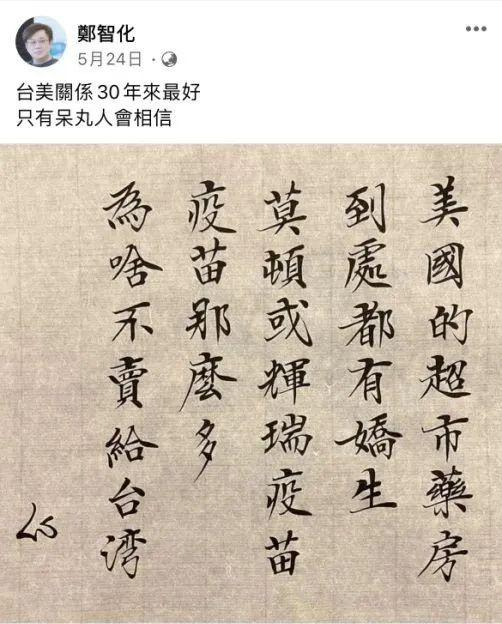 鄭智化
5月24日
台美關係30年來最好
只有呆丸人會相信
美國的超市藥房
到處都有嬌生
莫頓或輝瑞疫苗
疫苗那麼多
為啥不賣給台湾